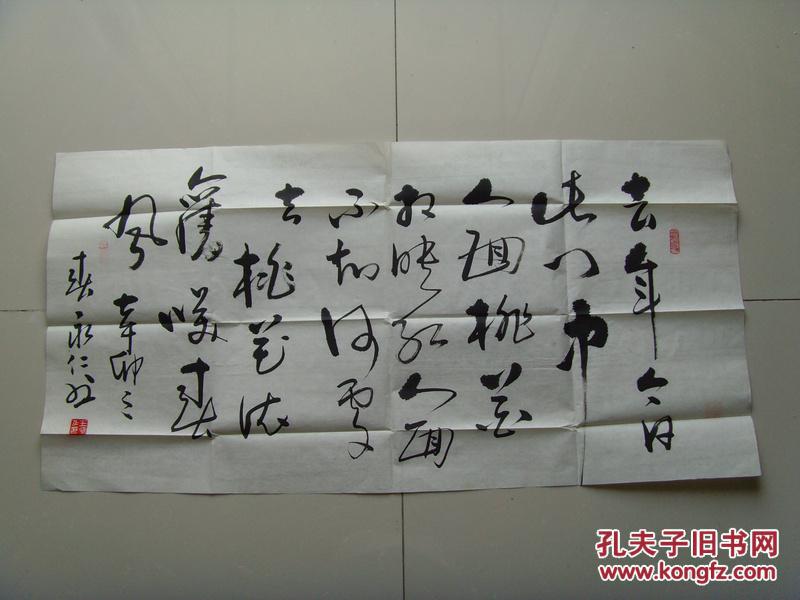 去年今日
此門中
人面桃花
相映紅人面
不知何處
去桃花依
舊咲春
風 辛卯之
春永仁书
孔夫子旧书网
www.kongfz.com